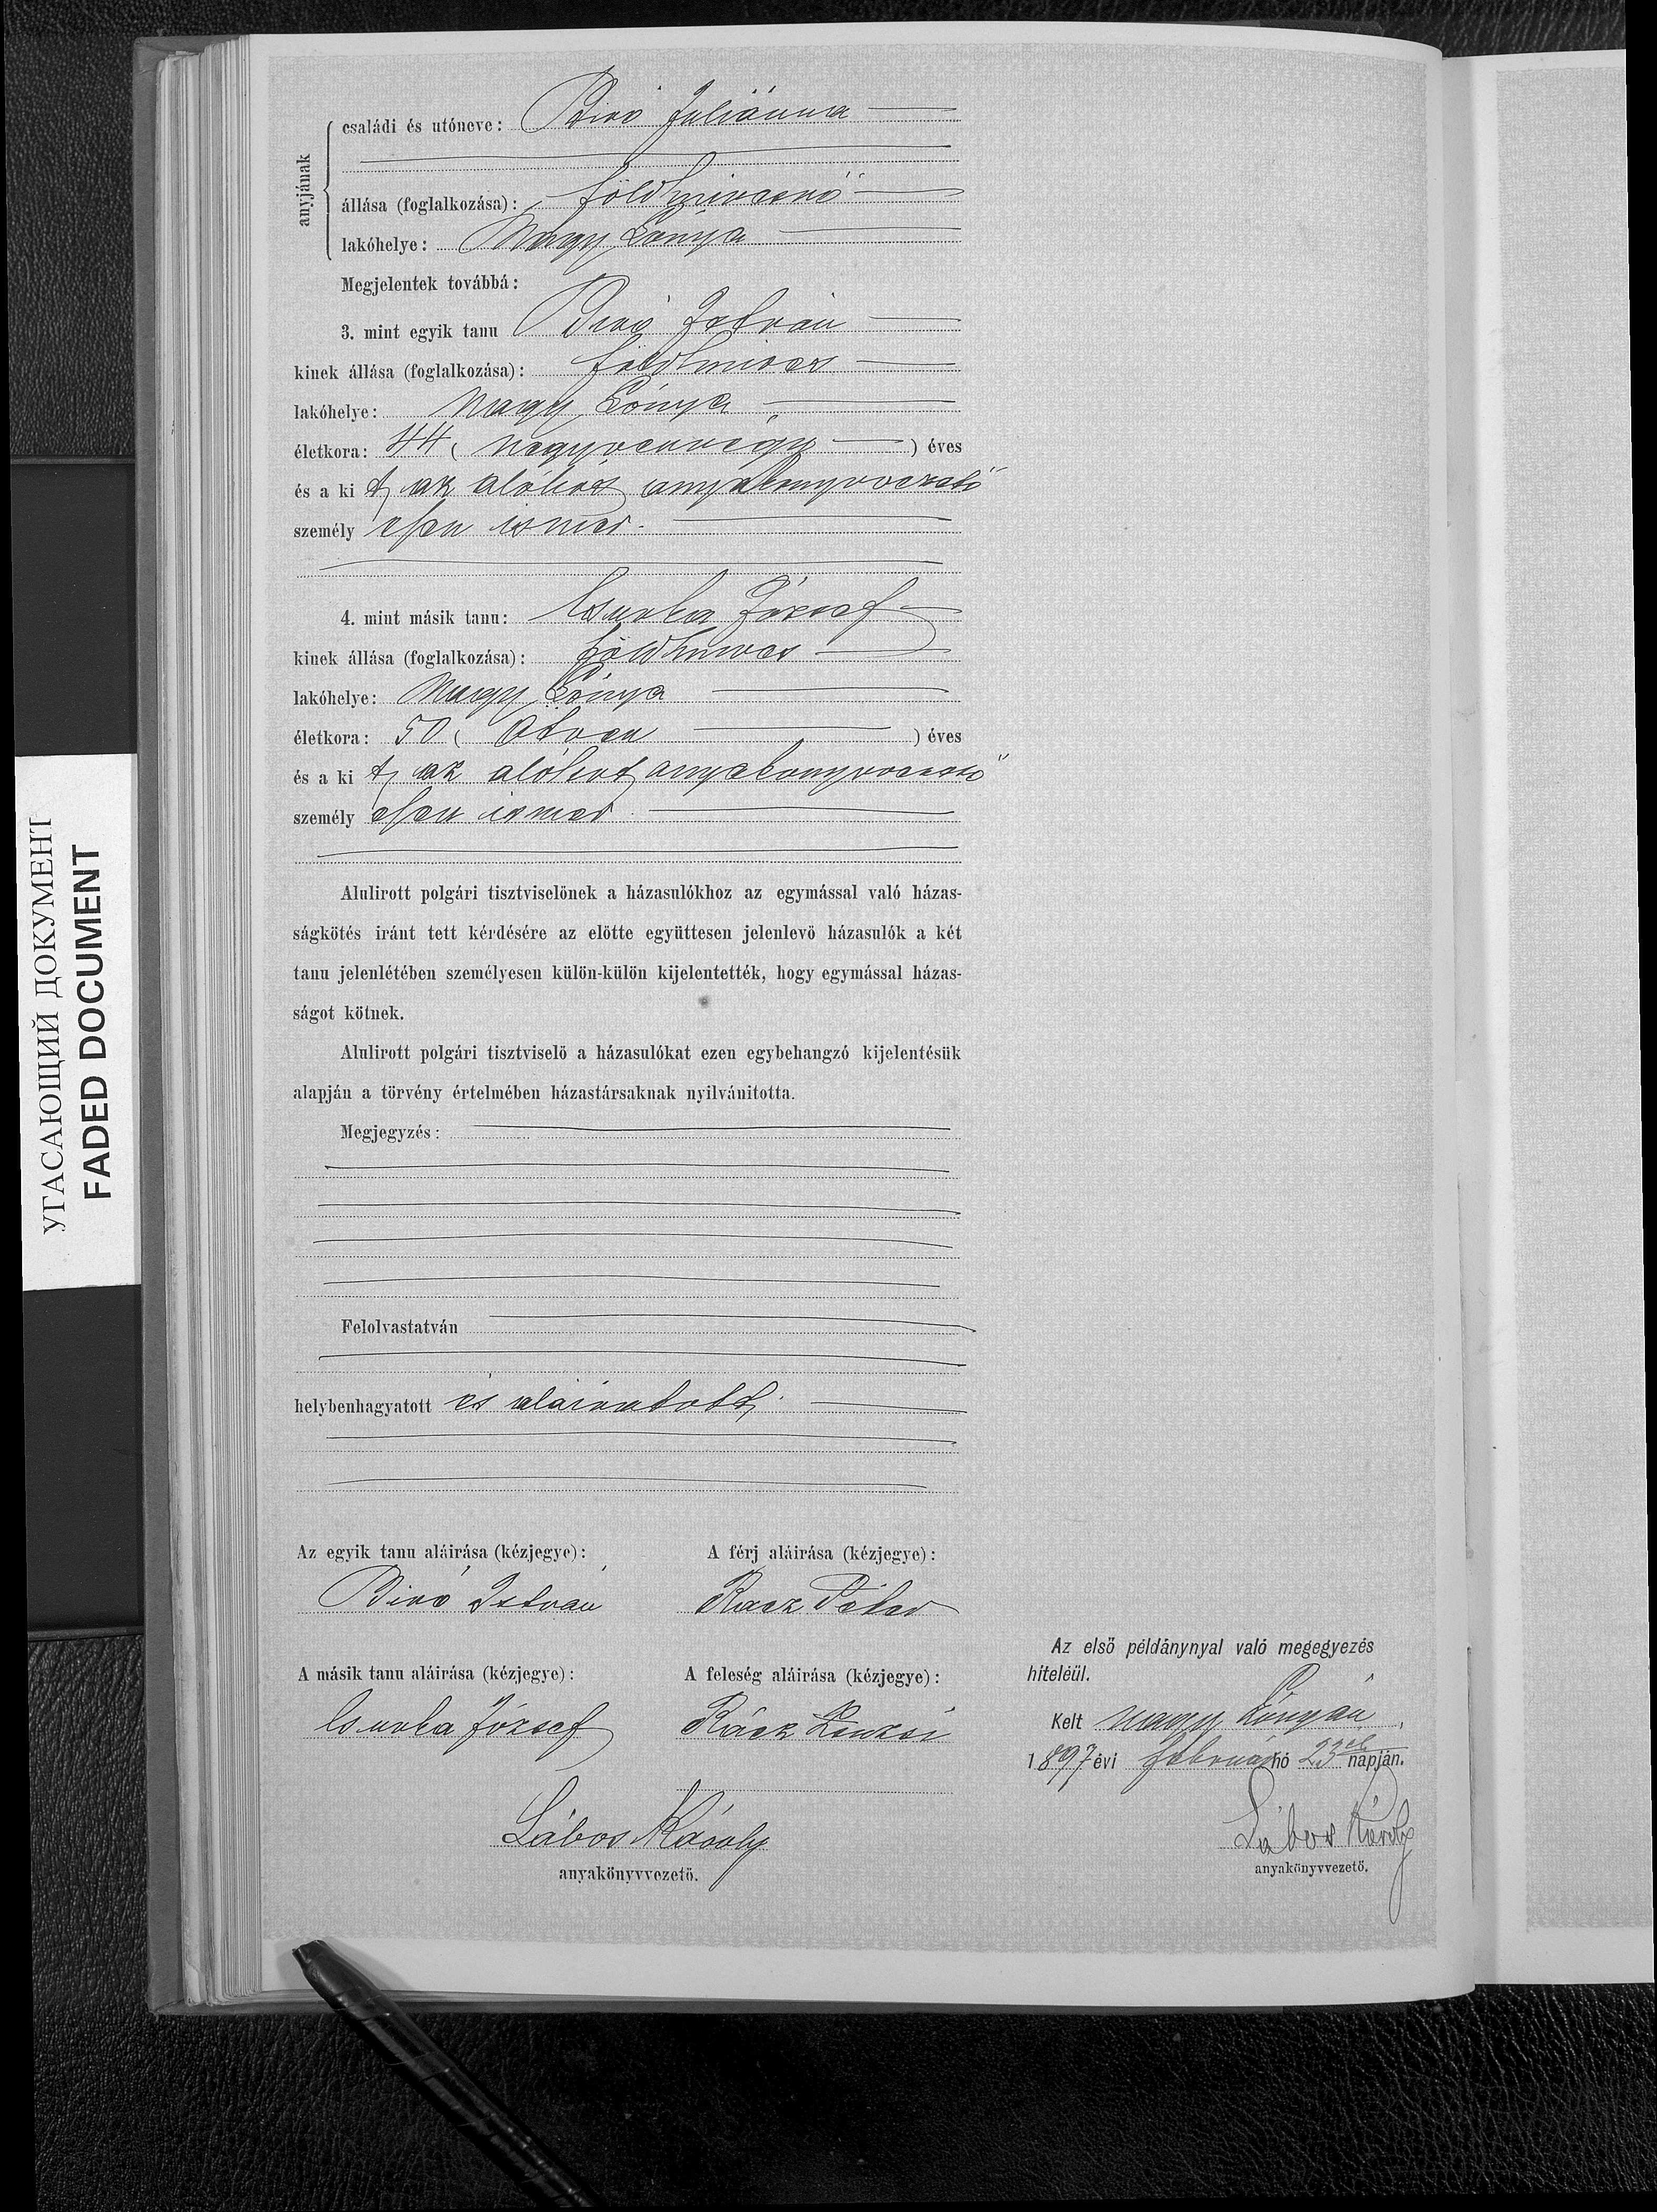 УГАСАЮЩИЙ ДОКУМЕНТ
FADED DOCUMENT
anyjának
családi és utóneve: Biró Juliánna
állása (foglalkozása): földmivesnő
lakóhelye: Nagy Lónya
Megjelentek továbbá:
3. mint egyik tanu Biró István
kinek állása (foglalkozása): földmives
lakóhelye: Nagy Lónya
életkora: 44 ( negyvennégy ) éves
és a ki t, az alólirt anyakönyvvezető
személy esen ismer.
4. mint másik tanu: Csurka József
kinek állása (foglalkozása): földmives
lakóhelye: Nagy Lónya
életkora: 50 ( Ötven ) éves
és a ki t, az alólirt anyakönyvvezető
személy esen ismer
Alulirott polgári tisztviselönek a házasulókhoz az egymással való házas-
ságkötés iránt tett kérdésére az elötte együttesen jelenlevö házasulók a két
tanu jelenlétében személyesen külön-külön kijelentették, hogy egymással házas-
ságot kötnek.
Alulirott polgári tisztviselö a házasulókat ezen egybehangzó kijelentésük
alapján a törvény értelmében házastársaknak nyilvánitotta.
Megjegyzés:
Felolvastatván
helybenhagyatott és aláiratott,
Az egyik tanu aláirása (kézjegye): A férj aláirása (kézjegye):
Biró István Rácz Péter
A másik tanu aláirása (kézjegye): A feleség aláirása (kézjegye):
Csurka József Rácz Zsuzsi
Lábos Károly
anyakönyvvezetö.
Az első példánynyal való megegyezés
hiteléül.
Kelt Nagy Lónyán,
1897 évi február hó 23 napján.
Lábos Károly
anyakönyvvezető.